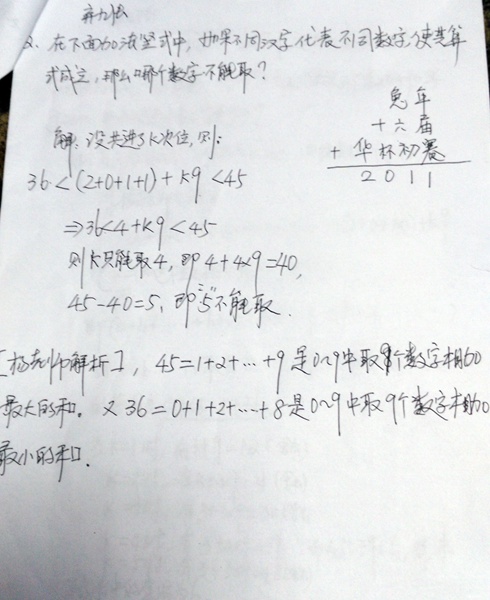 弃九法
2. 在下面的加法竖式中,如果不同汉字代表不同数字,使其算
式成立,那么哪个数字不能取?
兔年
十六届
+ 华杯初赛
2 0 1 1
解:设共进了k次位,则:
36<(2+0+1+1)+k9<45
⇒36<4+k9<45
则k只能取4,即4+4×9=40,
45-40=5,即"5"不能取.
解析],45=1+2+…+9是0~9中取9个数字相加
最大的和。又36=0+1+2+…+8是0~9中取9个数字相加
最小的和.